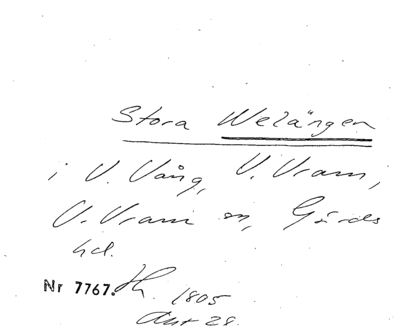 Stora Welängen
i V. Vång, V. Vram,
V. Vram sn, Gärds
hd.
Nr 7767. 1805